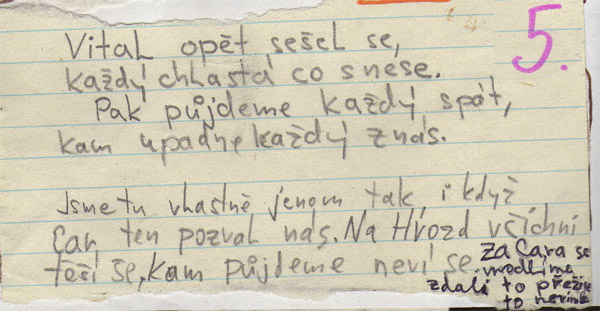 Vital opět sešel se,
každý chlastá co snese.
Pak půjdeme každý spát,
kam upadne každý z nás.
5.
Jsme tu vlastně jenom tak, i když
Car ten pozval nás. Na Hvozd všichni
těší se, kam půjdeme neví se.
za Cara se
modlíme
zdali to přežije
to nevíme